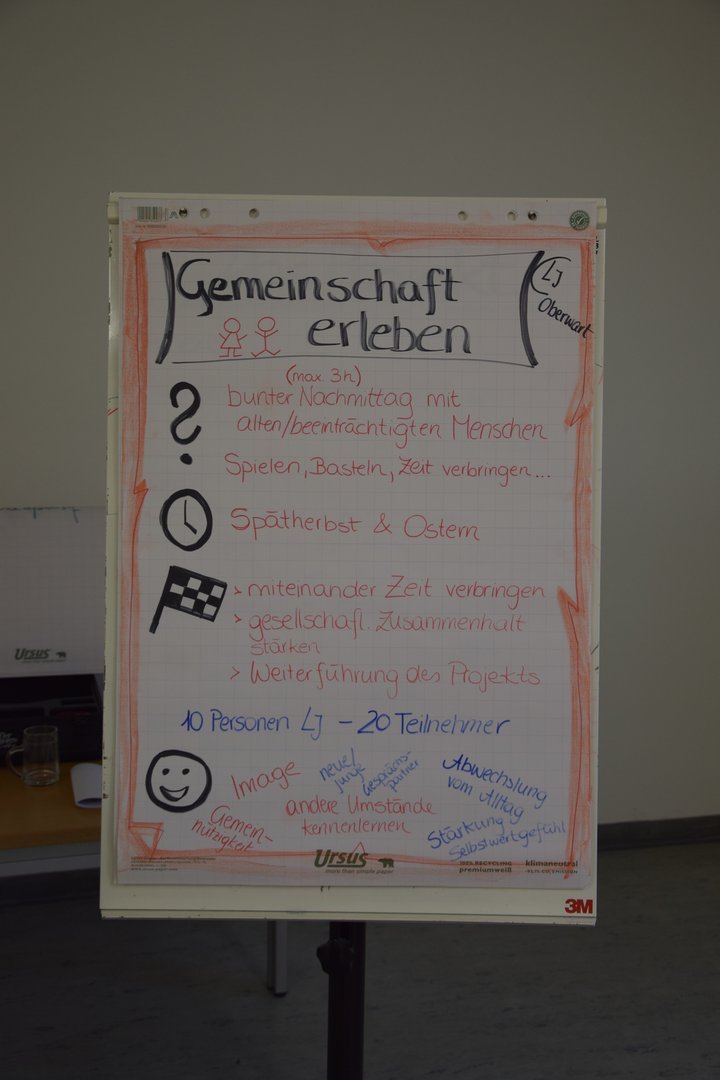 Gemeinschaft
erleben
LJ
Oberwart
(max. 3h)
bunter Nachmittag mit
alten/beeinträchtigten Menschen
Spielen, Basteln, Zeit verbringen...
Spätherbst & Ostern
> miteinander Zeit verbringen
> gesellschaftl. Zusammenhalt
stärken
> Weiterführung des Projekts
10 Personen LJ - 20 Teilnehmer
Image
neue/
junge
Gesprächs-
partner
Abwechslung
vom Alltag
Gemein-
nützigkeit
andere Umstände
kennenlernen
Stärkung
Selbstwertgefühl
Ursus
more than simple paper
100% RECYCLING
premiumweiß
klimaneutral
3M
Ursus